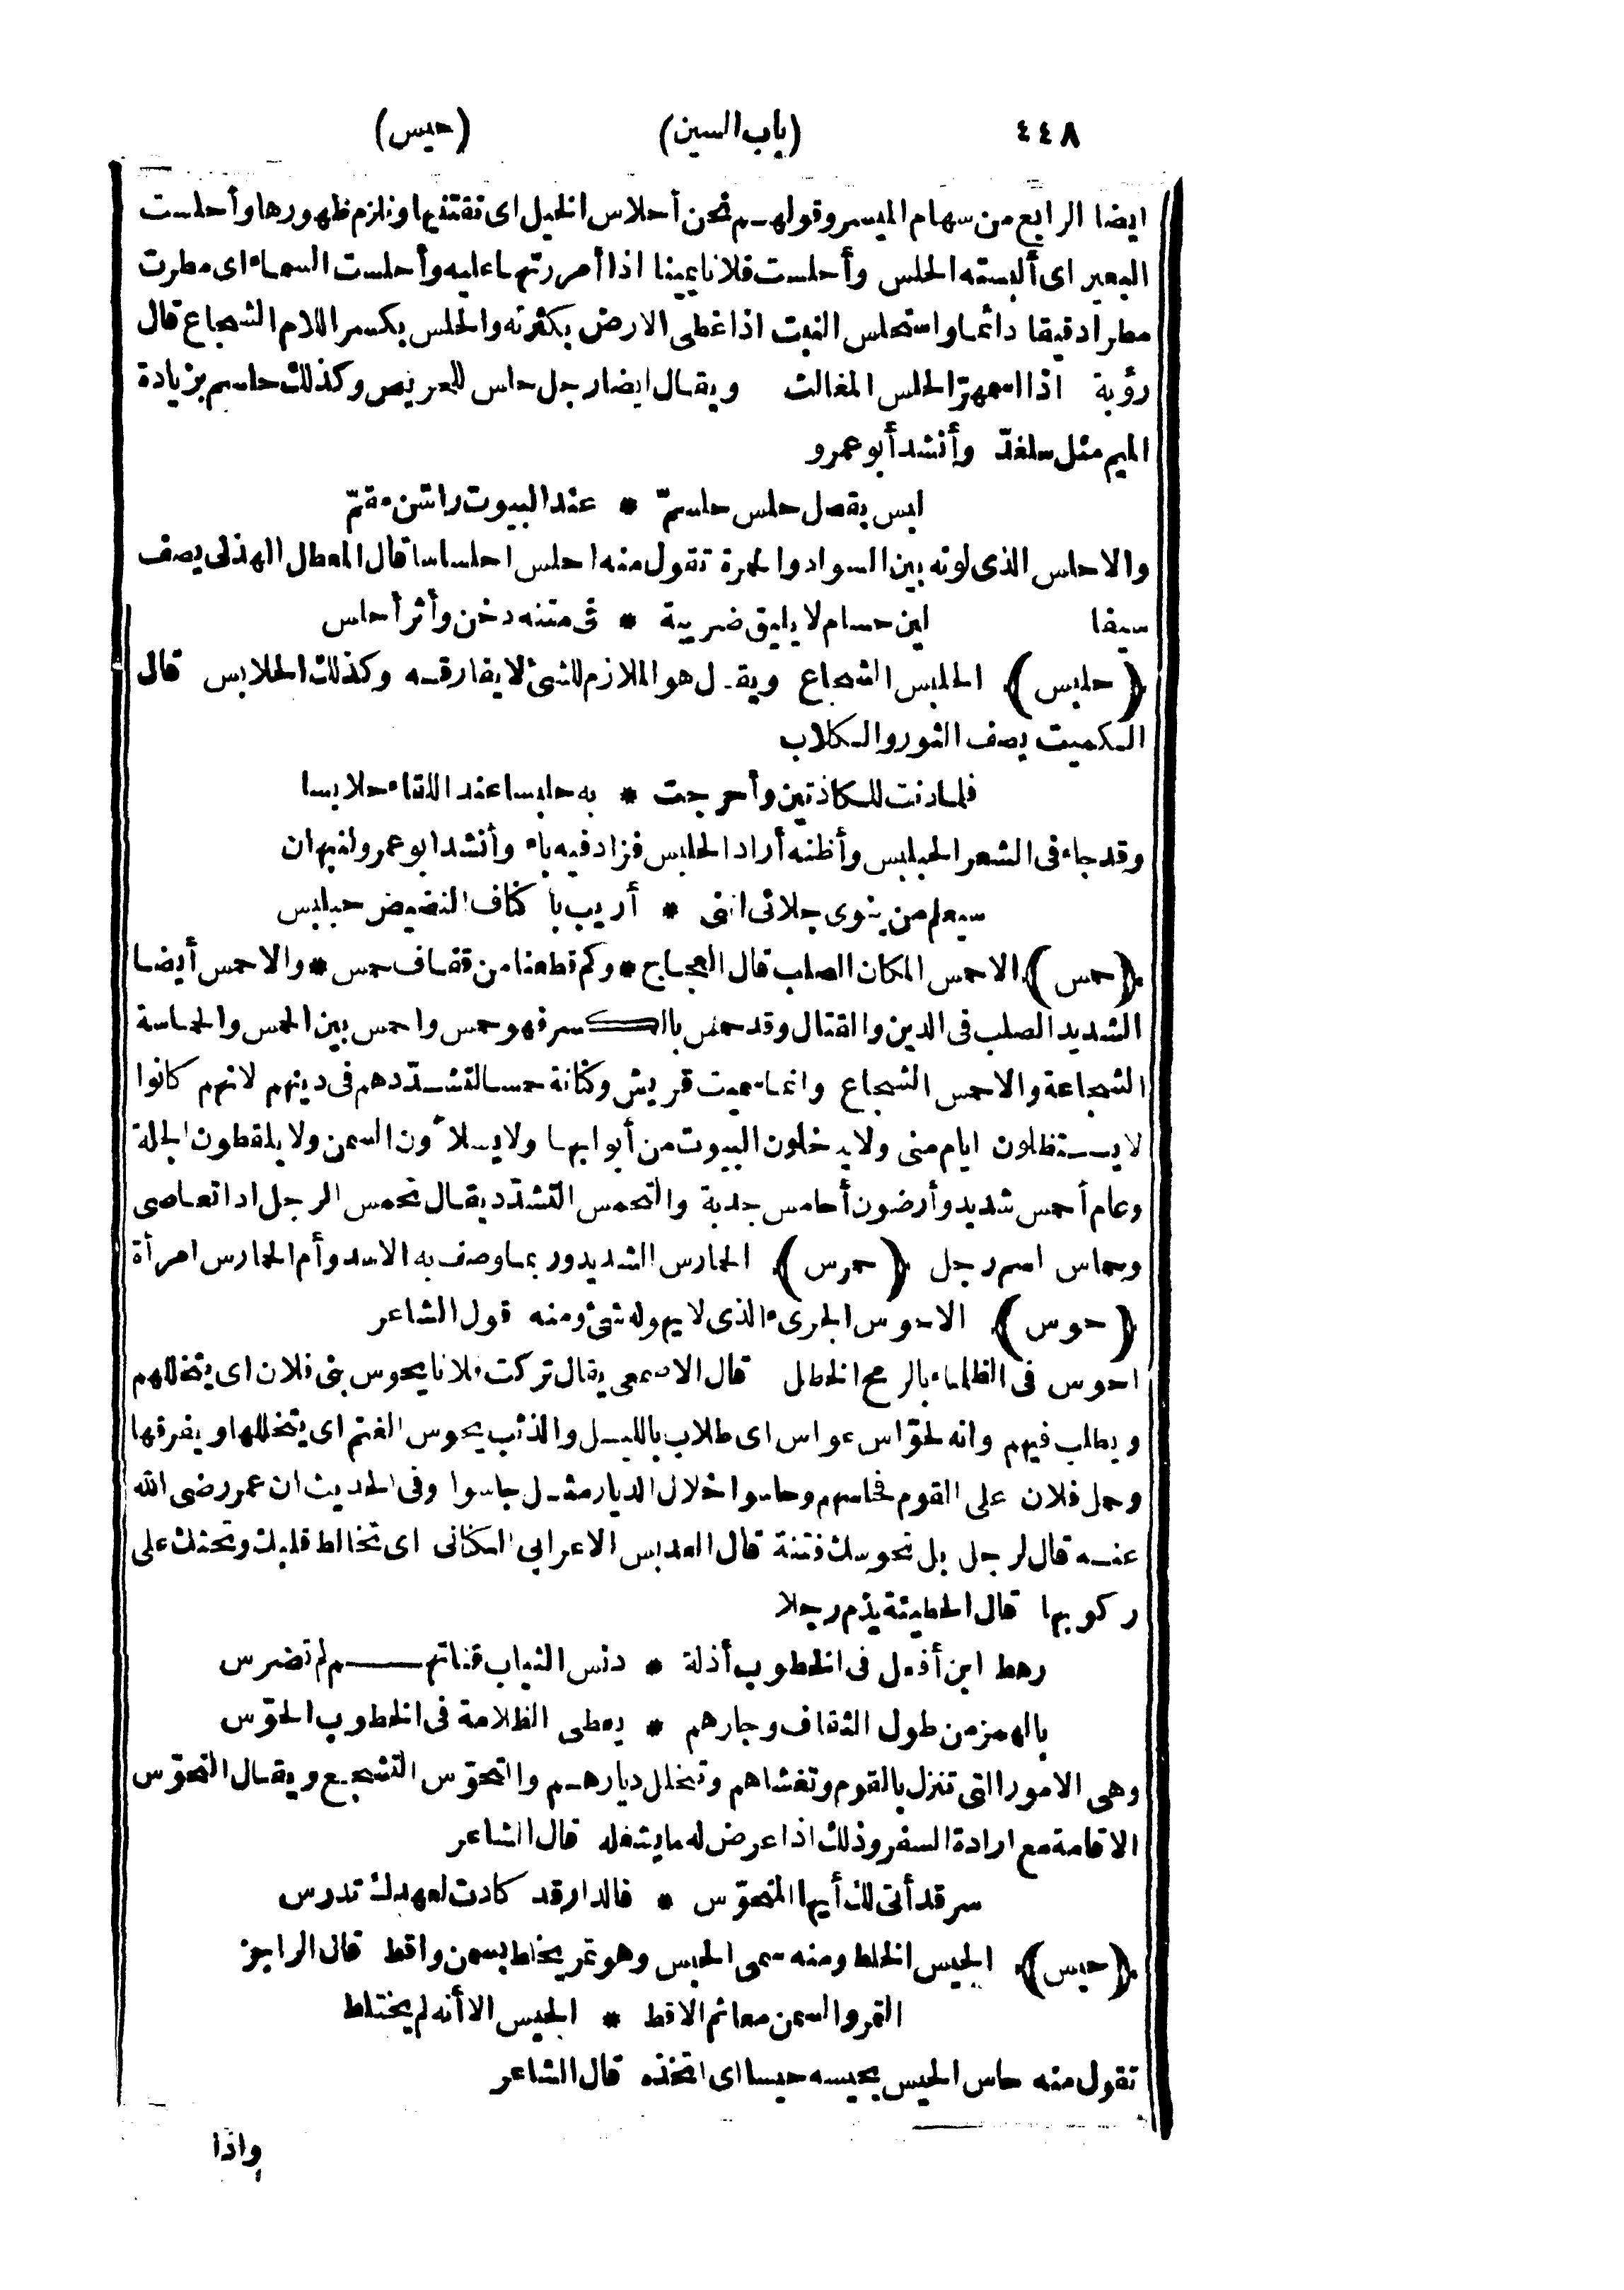 ٤٤٨ (باب السين) (حيس)
ايضا الرابع من سهام الميسر وقولهم نحن أحلاس الخيل اى نقتنيها ونلزم ظهورها وأحلست
البعير اى ألبسته الحلس وأحلست فلانا يمينا اذا أمررتها عليه وأحلست السماء اى مطرت
مطرا دقيقا دائما واستحلس النبت اذا غطى الارض بكثرته والحلس بكسر اللام الشجاع قال
رؤبة اذا اسمهرّ الحلس المغالث ويقال ايضا رجل حلس للحريص وكذلك حلسم بزيادة
الميم مثل سلغدّ وأنشد أبو عمرو
ليس بقصل حلس حلسمّ * عند البيوت راشن مقمّ
والاحلس الذى لونه بين السواد والحمرة تقول منه احلس احلساسا قال المعطل الهذلى يصف
سيفا لين حسام لا يليق ضريبة * فى متنه دخن وأثر أحلس
﴿حلبس﴾ الحلبس الشجاع ويقال هو الملازم للشئ لا يفارقه وكذلك الحلابس قال
الكميت يصف الثور والكلاب
فلما دنت للكاذتين وأحرجت * به حلبسا عند اللقاء حلابسا
وقد جاء فى الشعر الحبلبس وأظنه أراد الحلبس فزاد فيه باء وأنشد ابو عمرو لنبهان
سيعلم من ينوى جلائى اننى * أريب باكناف النضيض حبلبس
﴿حمس﴾ الاحمس المكان الصلب قال العجاج * وكم قطعنا من قفاف حمس * والاحمس أيضا
الشديد الصلب فى الدين والقتال وقد حمس بالكسر فهو حمس واحمس بين الحمس والحماسة
الشجاعة والاحمس الشجاع وانما سميت قريش وكنانة حمسا لتشدّدهم فى دينهم لانهم كانوا
لا يستظلون ايام منى ولا يدخلون البيوت من أبوابها ولا يسلأون السمن ولا يلقطون الجلة
وعام أحمس شديد وأرضون أحامس جدبة والتحمس التشدّد يقال تحمس الرجل اذا تعاصى
وحماس اسم رجل ﴿حمرس﴾ الحمارس الشديد وربما وصف به الاسد وأم الحمارس امرأة
﴿حوس﴾ الاحوس الجرىء الذى لا يهوله شئ ومنه قول الشاعر
احوس فى الظلماء بالرمح الخطل قال الاصمعى يقال تركت فلانا يحوس بنى فلان اى يتخللهم
ويطلب فيهم وانه لحوّاس عواس اى طلاب بالليل والذئب يحوس الغنم اى يتخللها ويفرقها
وحمل فلان على القوم فحاسهم وحاسوا خلال الديار مثل جاسوا وفى الحديث ان عمر رضى الله
عنه قال لرجل بل تحوسك فتنة قال العدبس الاعرابى الكنانى اى تخالط قلبك وتحثك على
ركوبها قال الحطيئة يذم رجلا
رهط ابن أفعل فى الخطوب أذلة * دنس الثياب قناتهم لم تضرس
بالهمز من طول الثقاف وجارهم * يعطى الظلامة فى الخطوب الحوّس
وهى الامور التى تنزل بالقوم وتغشاهم وتخلل ديارهم والتحوّس التشجع ويقال التحوّس
الاقامة مع ارادة السفر وذلك اذا عرض له ما يشغله قال الشاعر
سر قد أنى لك أيها المتحوّس * فالدار قد كادت لعهدك تدرس
﴿حيس﴾ الحيس الخلط ومنه سمى الحيس وهو تمر يخلط بسمن واقط قال الراجز
التمر والسمن معا ثم الاقط * الحيس الا أنه لم يختلط
تقول منه حاس الحيس يحيسه حيسا اى اتخذه قال الشاعر
واذا